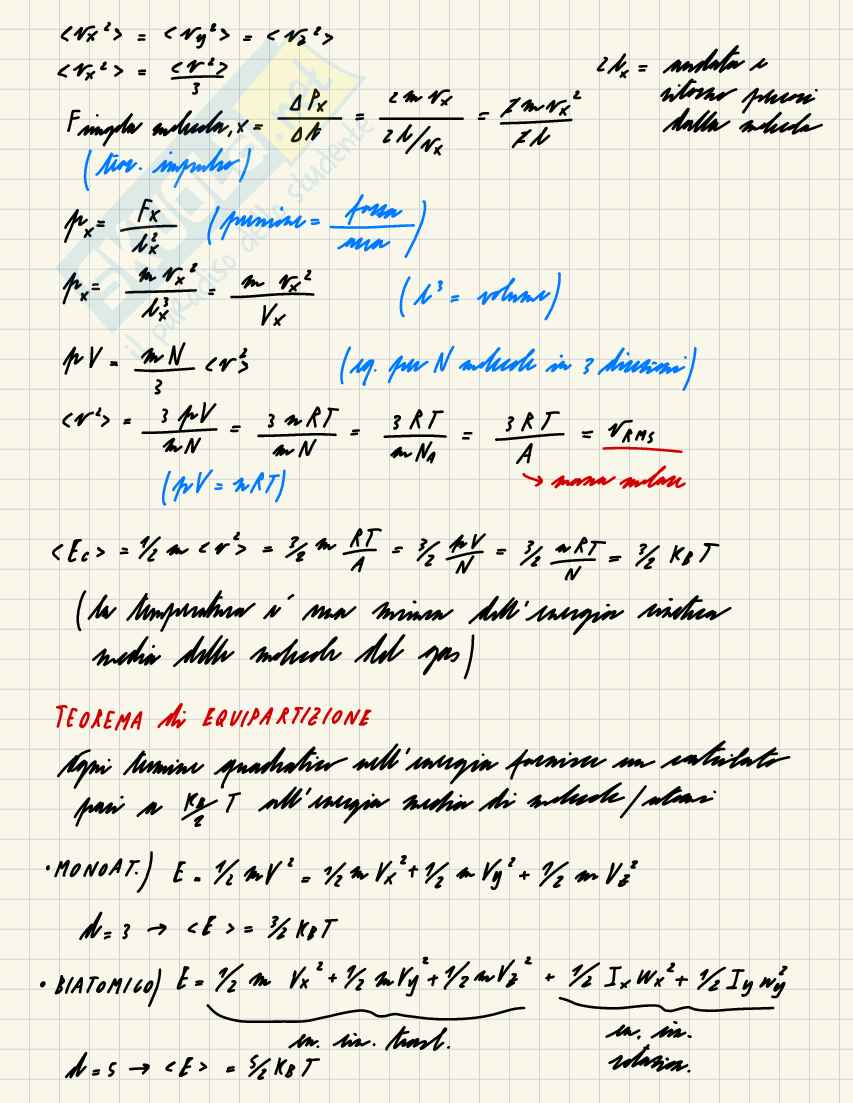 <vx²> = <vy²> = <vz²>
<vx²> = <v²>/3
2lx = andata e
ritorno percorsi
dalla molecola
F singola molecola, x = ΔPx/Δt = 2mvx / 2l/vx = 2mvx²/2l
(teor. impulso)
px = Fx/lx² (pressione = forza/area)
px = mvx²/lx³ = m vx²/Vx (l³ = volume)
pV = mN/3 <v²> (eq. per N molecole in 3 direzioni)
<v²> = 3pV/mN = 3nRT/mN = 3RT/mNA = 3RT/A = vRMS
(pV = nRT) → massa molare
<Ec> = 1/2 m <v²> = 3/2 m RT/A = 3/2 pV/N = 3/2 nRT/N = 3/2 KBT
(la temperatura e' una misura dell'energia cinetica
media delle molecole del gas)
TEOREMA di EQUIPARTIZIONE
Ogni termine quadratico nell'energia fornisce un contributo
pari a KB/2 T all'energia media di molecole/atomi
• MONOAT.) E = 1/2 mV² = 1/2 m Vx² + 1/2 m Vy² + 1/2 m Vz²
d = 3 → <E> = 3/2 KBT
• BIATOMICO) E = 1/2 m Vx² + 1/2 mVy² + 1/2 mVz² + 1/2 Ix Wx² + 1/2 Iy wy²
en. cin. trasl.
en. cin.
rotazion.
d = 5 → <E> = 5/2 KBT
il paradiso dello studente